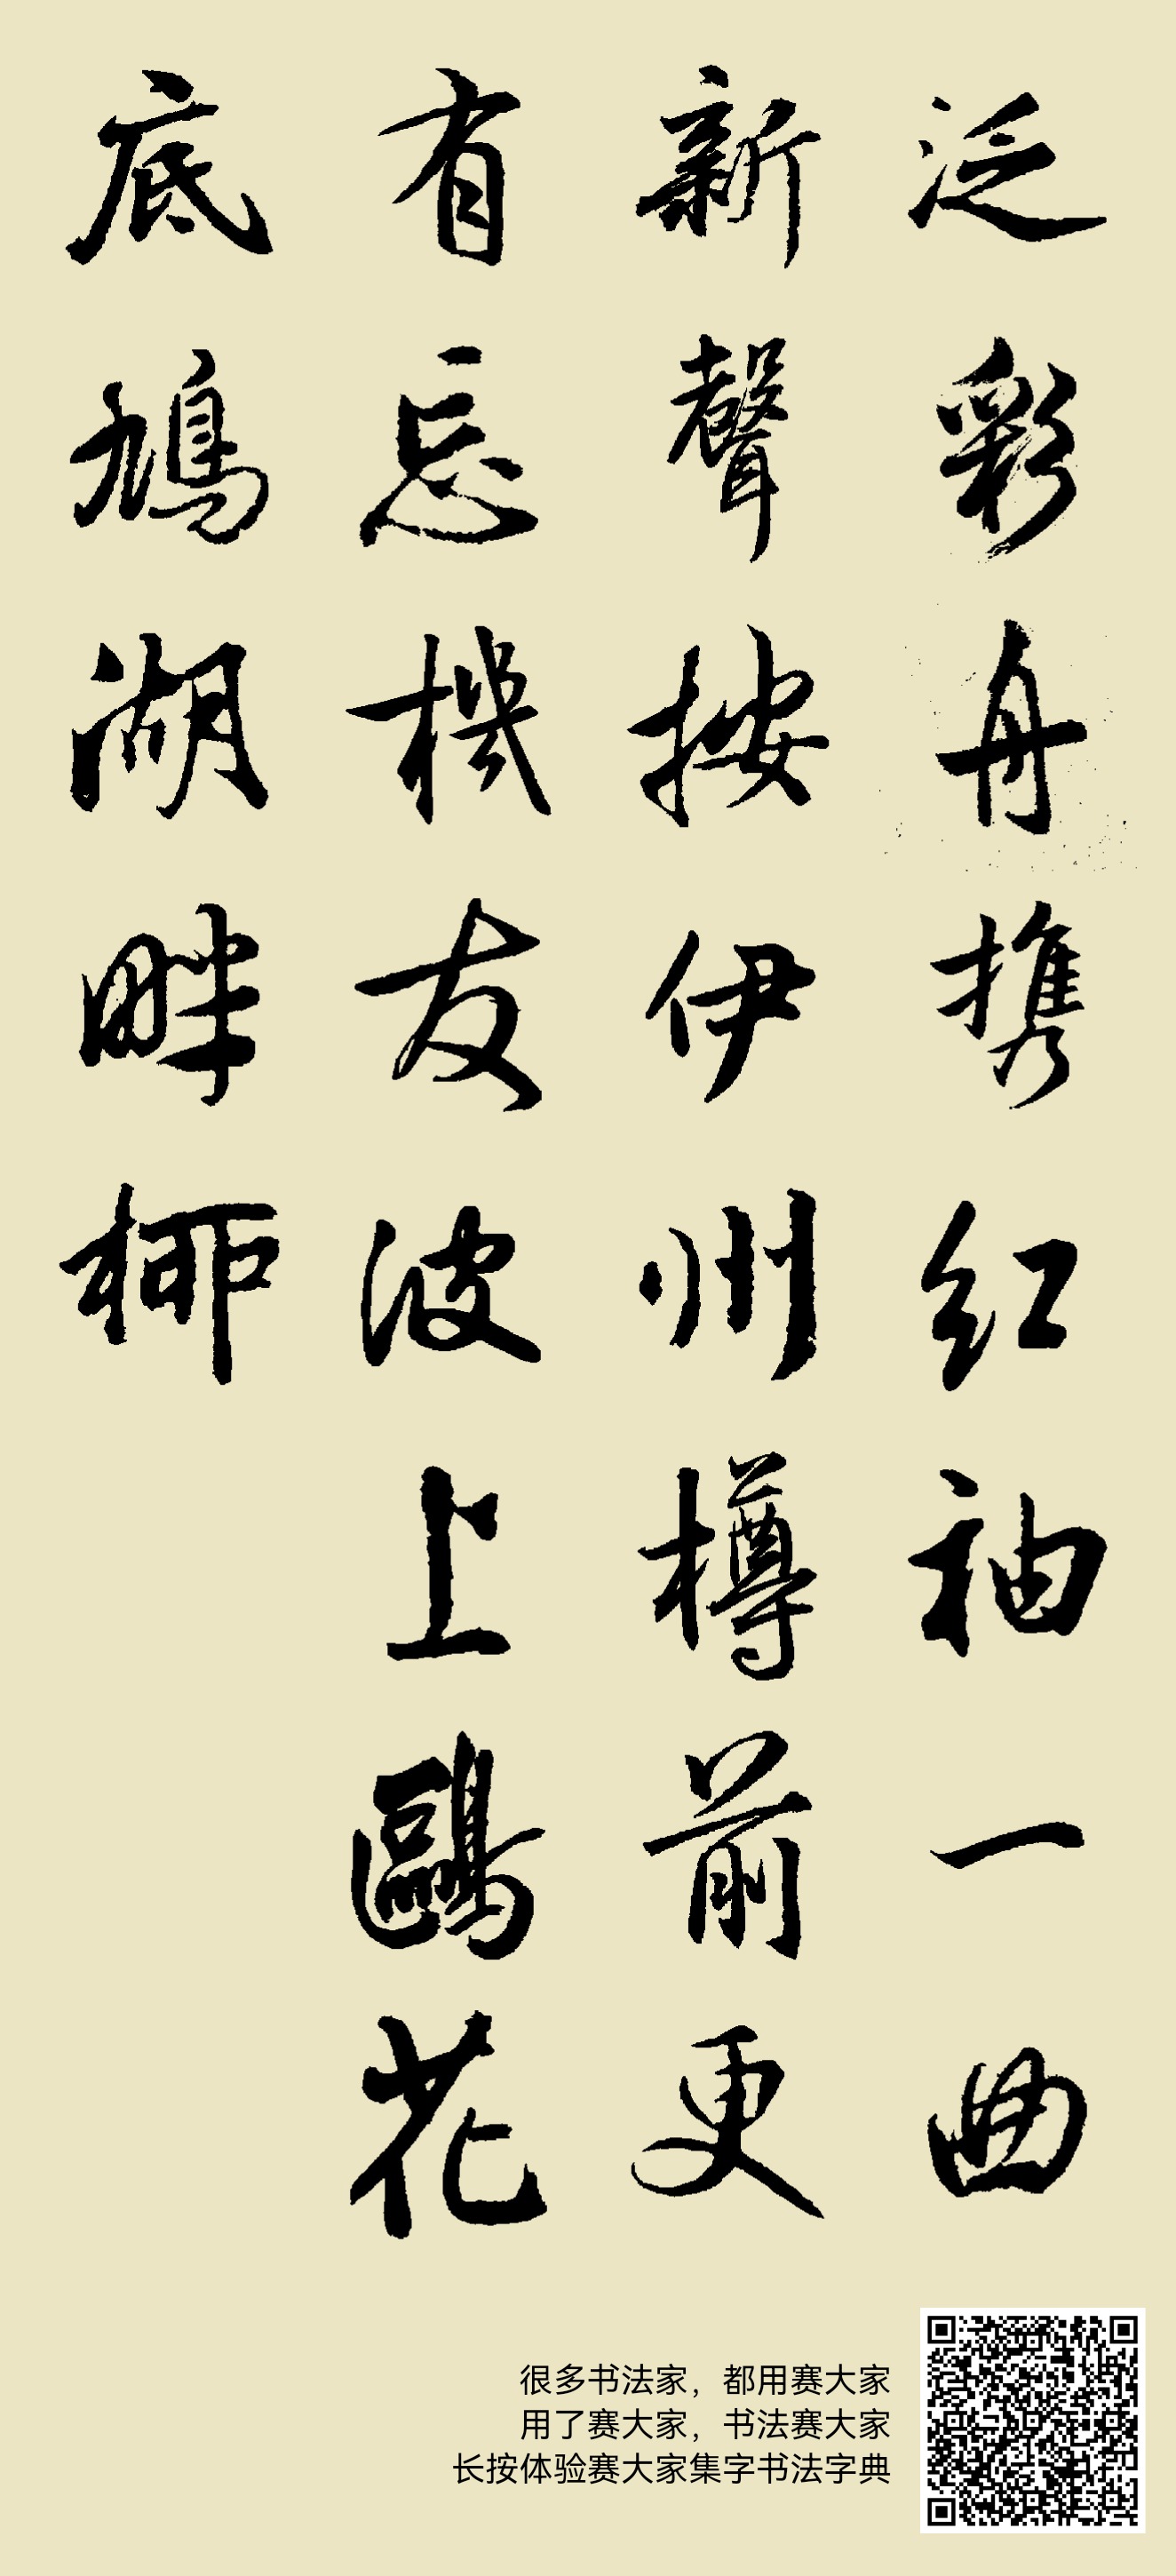 泛彩舟携红袖一曲
新聲按伊州樽前更
有忘機友波上鷗花
底鳩湖畔栁
很多书法家，都用赛大家
用了赛大家，书法赛大家
长按体验赛大家集字书法字典